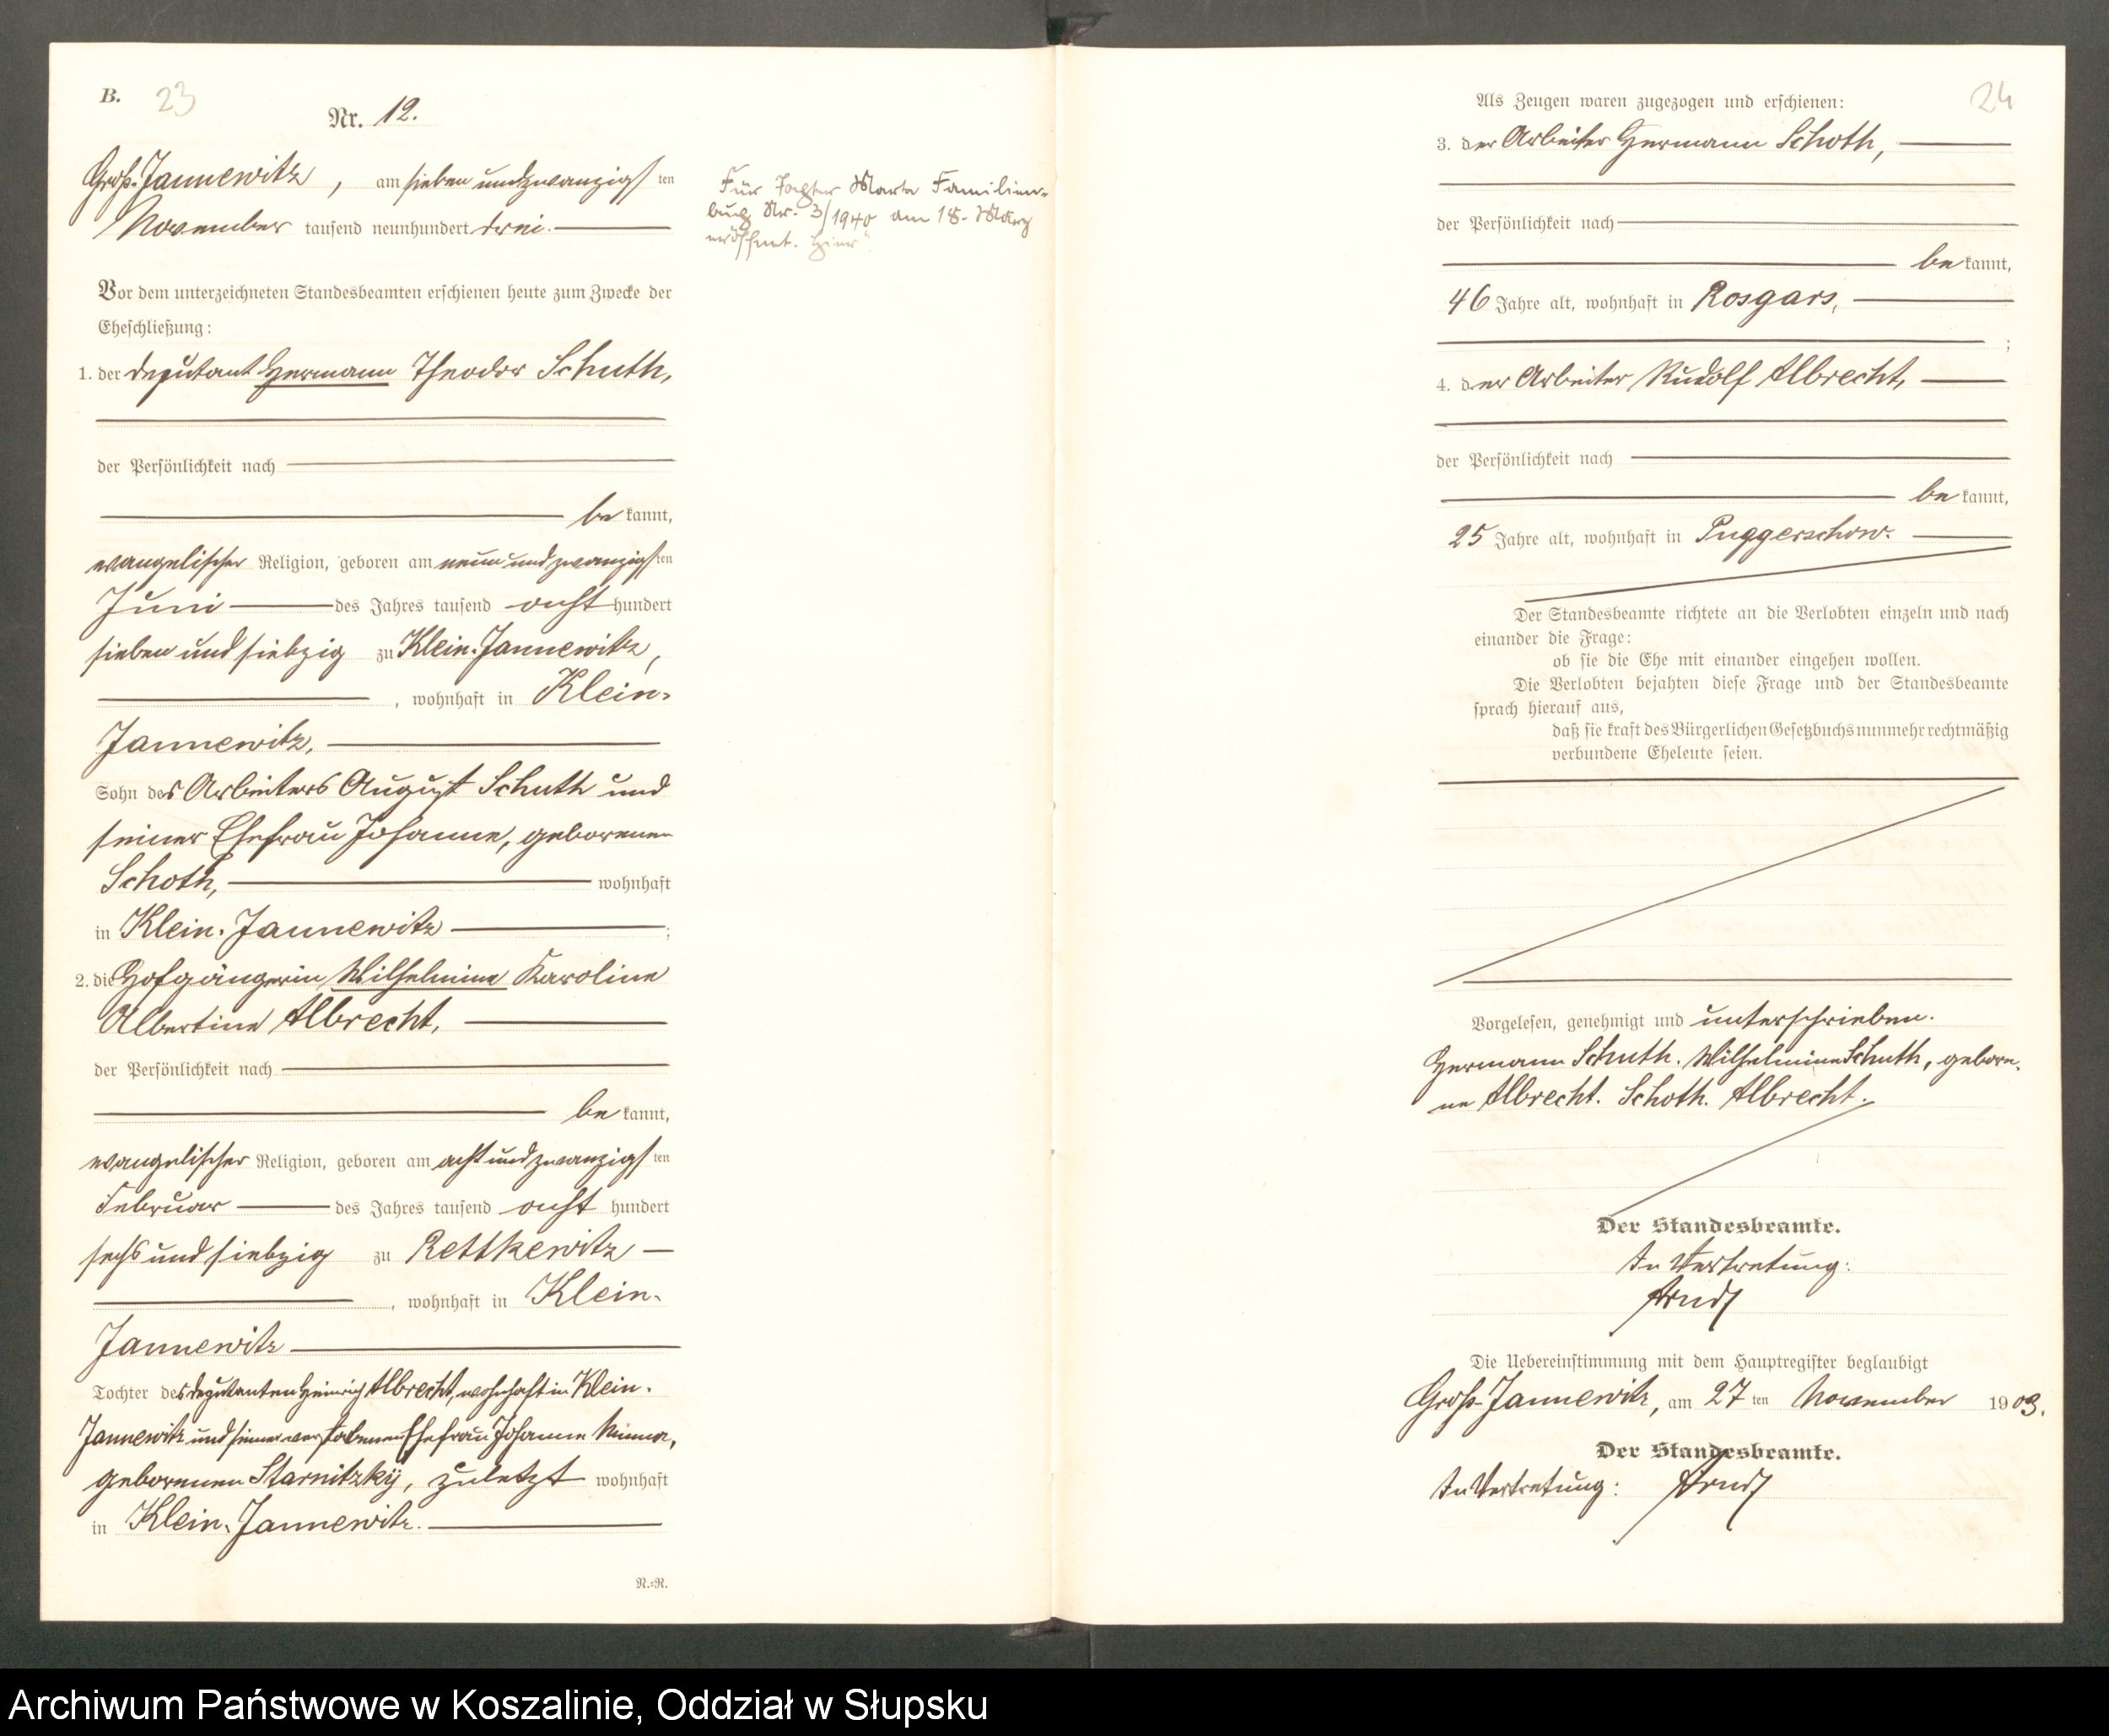 B. 23
Nr. 12.
Groß-Jannewitz, am sieben und zwanzigsten
November tausend neunhundert drei.
Vor dem unterzeichneten Standesbeamten erschienen heute zum Zwecke der
Eheschließung:
1. der Deputant Hermann Theodor Schuth,
der Persönlichkeit nach
be kannt,
evangelischer Religion, geboren am neun und zwanzigsten
Juni des Jahres tausend acht hundert
sieben und siebzig zu Klein-Jannewitz,
, wohnhaft in Klein-
Jannewitz,
Sohn des Arbeiters August Schuth und
seiner Ehefrau Johanne, geborenen
Schoth, wohnhaft
in Klein-Jannewitz ;
2. die Hofgängerin Wilhelmine Karoline
Albertine Albrecht,
der Persönlichkeit nach
be kannt,
evangelischer Religion, geboren am acht und zwanzigsten
Februar des Jahres tausend acht hundert
sechs und siebzig zu Rettkewitz
, wohnhaft in Klein-
Jannewitz
Tochter des Deputanten Heinrich Albrecht, wohnhaft in Klein-
Jannewitz und seiner verstorbenen Ehefrau Johanne Minna,
geborenen Starnitzky, zuletzt wohnhaft
in Klein-Jannewitz.
N.=R.
Für Tochter Marta Familien-
buch Nr. 3/1940 am 18. März
eröffnet. hier
24
Als Zeugen waren zugezogen und erschienen:
3. der Arbeiter Hermann Schoth,
der Persönlichkeit nach
be kannt,
46 Jahre alt, wohnhaft in Rosgars,
;
4. der Arbeiter Rudolf Albrecht,
der Persönlichkeit nach
be kannt,
25 Jahre alt, wohnhaft in Puggerschow.
Der Standesbeamte richtete an die Verlobten einzeln und nach
einander die Frage:
ob sie die Ehe mit einander eingehen wollen.
Die Verlobten bejahten diese Frage und der Standesbeamte
sprach hierauf aus,
daß sie kraft des Bürgerlichen Gesetzbuchs nunmehr rechtmäßig
verbundene Eheleute seien.
Vorgelesen, genehmigt und unterschrieben.
Hermann Schuth. Wilhelmine Schuth, gebore-
ne Albrecht. Schoth. Albrecht.
Der Standesbeamte.
In Vertretung:
Arndt
Die Uebereinstimmung mit dem Hauptregister beglaubigt
Groß-Jannewitz, am 27 ten November 1903.
Der Standesbeamte.
In Vertretung: Arndt
Archiwum Państwowe w Koszalinie, Oddział w Słupsku